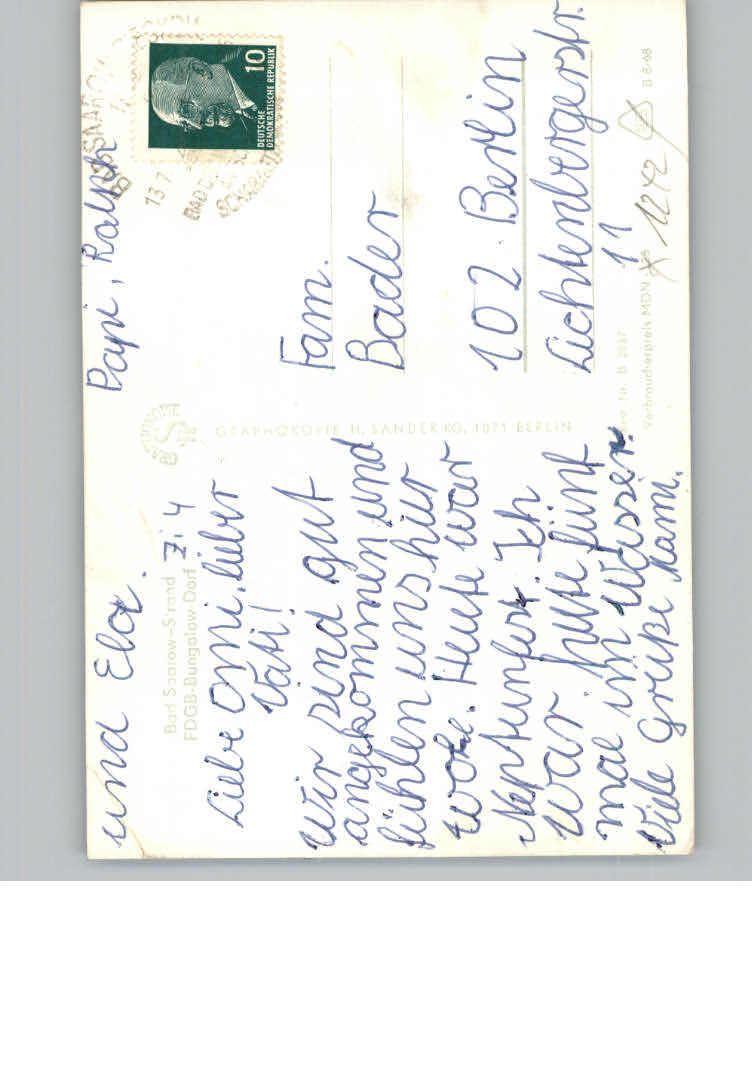 Bad Saarow-Strand
FDGB-Bungalow Dorf
Zi 4
Liebe Omi, lieber
Vati!
Wir sind gut
angekommen und
fühlen uns hier
wohl. Heute war
Neptunfest. Ich
war heute fünf
mal im Wasser.
Viele Grüße Mami,
Papi, Ralph
und Ela.
GRAPHOKOPIE H. SANDER KG, 1071 BERLIN
10
DEUTSCHE
DEMOKRATISCHE REPUBLIK
BAD SAAROW
13.7
Fam.
Bader
102 Berlin
Lichtenbergerstr.
11
Verbraucherpreis MDN
B 6/68
1242